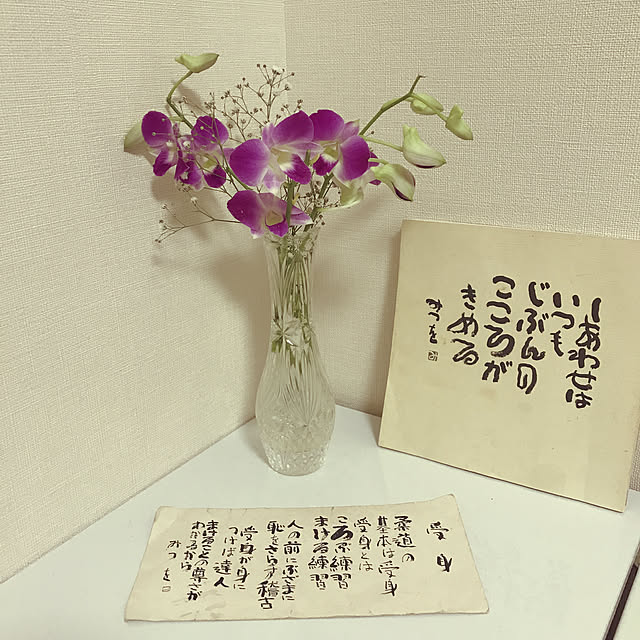 しあわせは
いつも
じぶんの
こころが
きめる
みつを
受身
柔道の
基本は受身
受身とは
ころぶ練習
まける練習
人の前にぶざまに
恥をさらす稽古
受身が身に
つけば達人
まけることの尊さが
わかるから
みつを